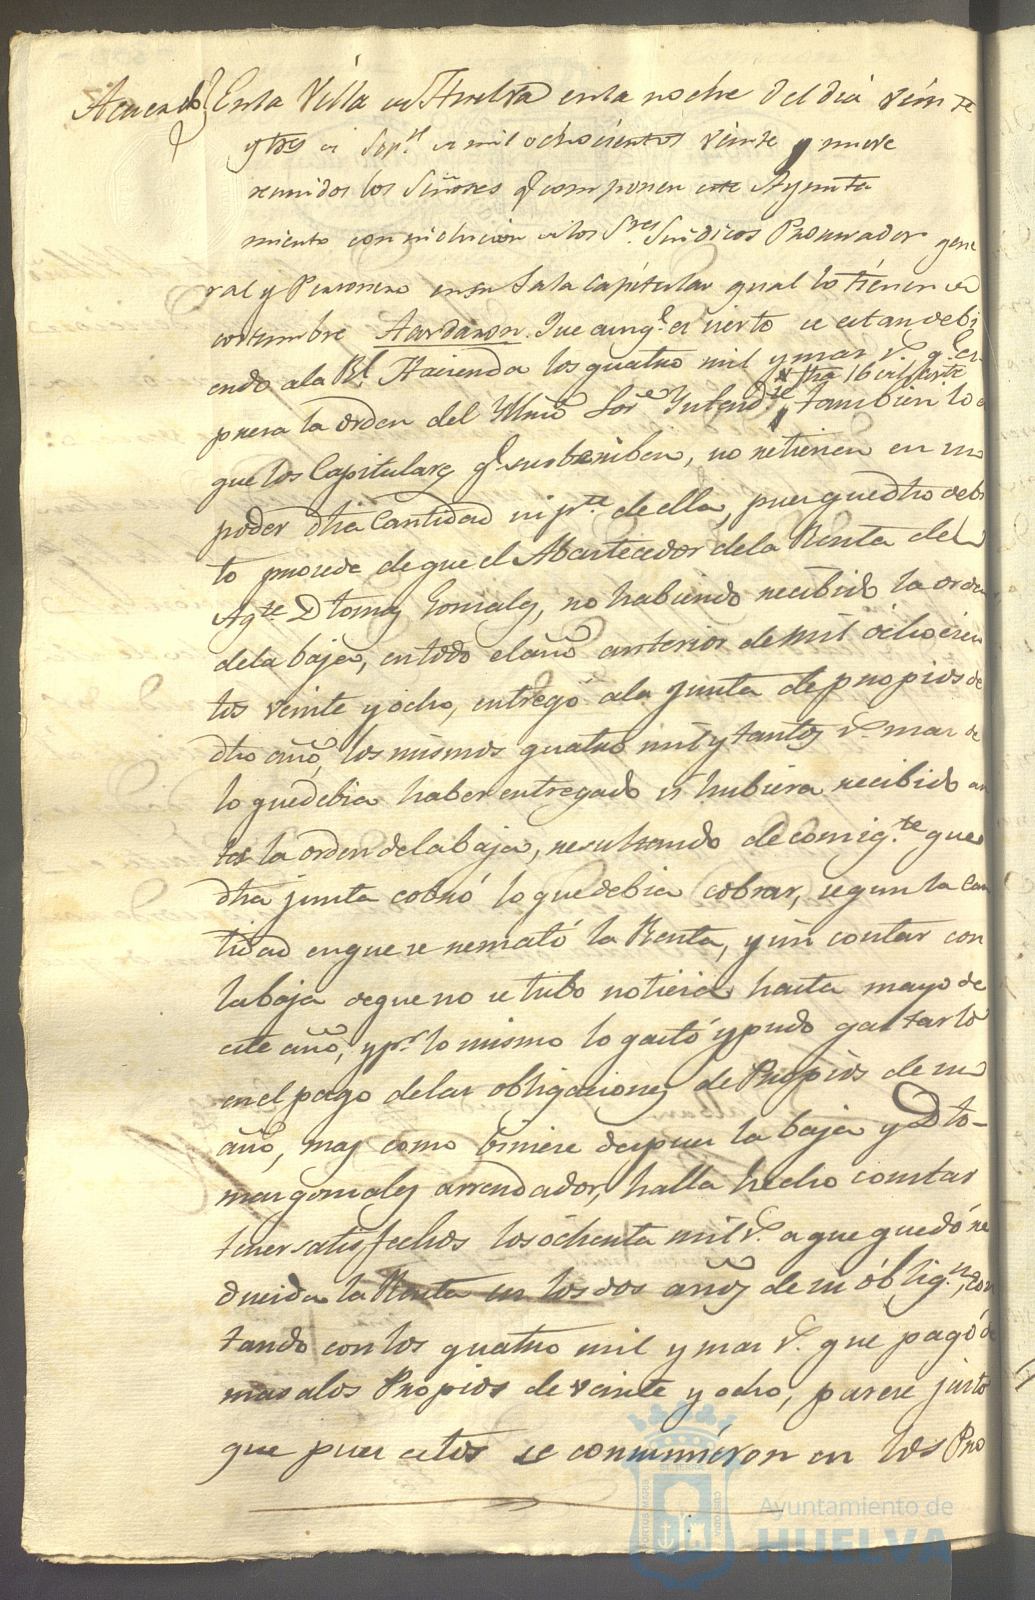 Acuerdo} En la Villa de Huelva en la noche del dia vein te
y tres de Sept.e de mil ochocientos veinte y nueve
reunidos los Señores q.e componen este Ayunta
miento con inclusion de los S.res Sindicos Procurador gene
ral y Personero en su Sala capitular qual lo tienen de
costumbre Acordaron. Que aunq.e es cierto se estan debi
endo a la R.l Hacienda los quatro mil y mas r.s q.e es-
presa la orden del Yllmo Sor Intend.te fha 16 del corrte tambien lo es
que los Capitulares q.e subscriben, no retienen en su
poder dha Cantidad ni p.te de ella, pues que dho debi
to procede de que el Abastecedor de la Renta del
Ag.te D Tomas Gonzales, no habiendo recibido la orden
de la baja, en todo el año anterior de mil ochocien
tos veinte y ocho, entregó a la junta de propios de
dho año, los mismos quatro mil y tantos r.s mas de
lo que debia haber entregado si hubiera recibido an
tes la orden de la baja, resultando de consig.te que
dha junta cobró lo que debia cobrar, segun la Can
tidad en que se remató la Renta, y sin contar con
la baja de que no se tubo noticia hasta mayo de
este año, y p.r lo mismo lo gastó y pudo gastarlo
en el pago de las obligaciones de Propios de su
año, mas como biniere despues la baja y D To-
mas Gonzales arrendador, halla hecho constar
tener satisfechos los ochenta mil r.s a que quedó re
ducida la Renta en los dos años de su oblig.n, con
tando con los quatro mil y mas r.s que pagó de
mas a los Propios de veinte y ocho, parece justo
que pues estos se consumieron en los Pro
Ayuntamiento de
HUELVA